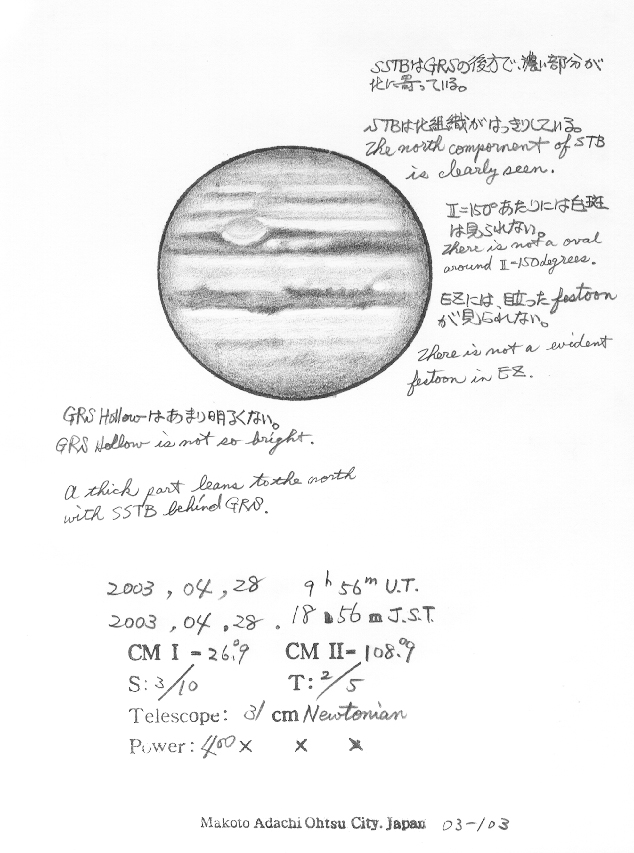 SSTBはGRSの後方で、濃い部分が
北に寄っている。
STBは北組織がはっきりしている。
The north compornent of STB
is clearly seen.
II=150°あたりには白斑
は見られない。
There is not a oval
around II=150degrees.
EZには、目立った festoon
が見られない。
There is not a evident
festoon in EZ.
GRS Hollowはあまり明るくない。
GRS Hollow is not so bright.
A thick part leans to the north
with SSTB behind GRS.
2003, 04, 28 9h 56m U.T.
2003, 04, 28. 18h56m J.S.T.
CM I = 26.°9 CM II= 108.°9
S: 3/10 T: 2/5
Telescope: 31 cm Newtonian
Power: 400 × × ×
Makoto Adachi Ohtsu City. Japan 03-103